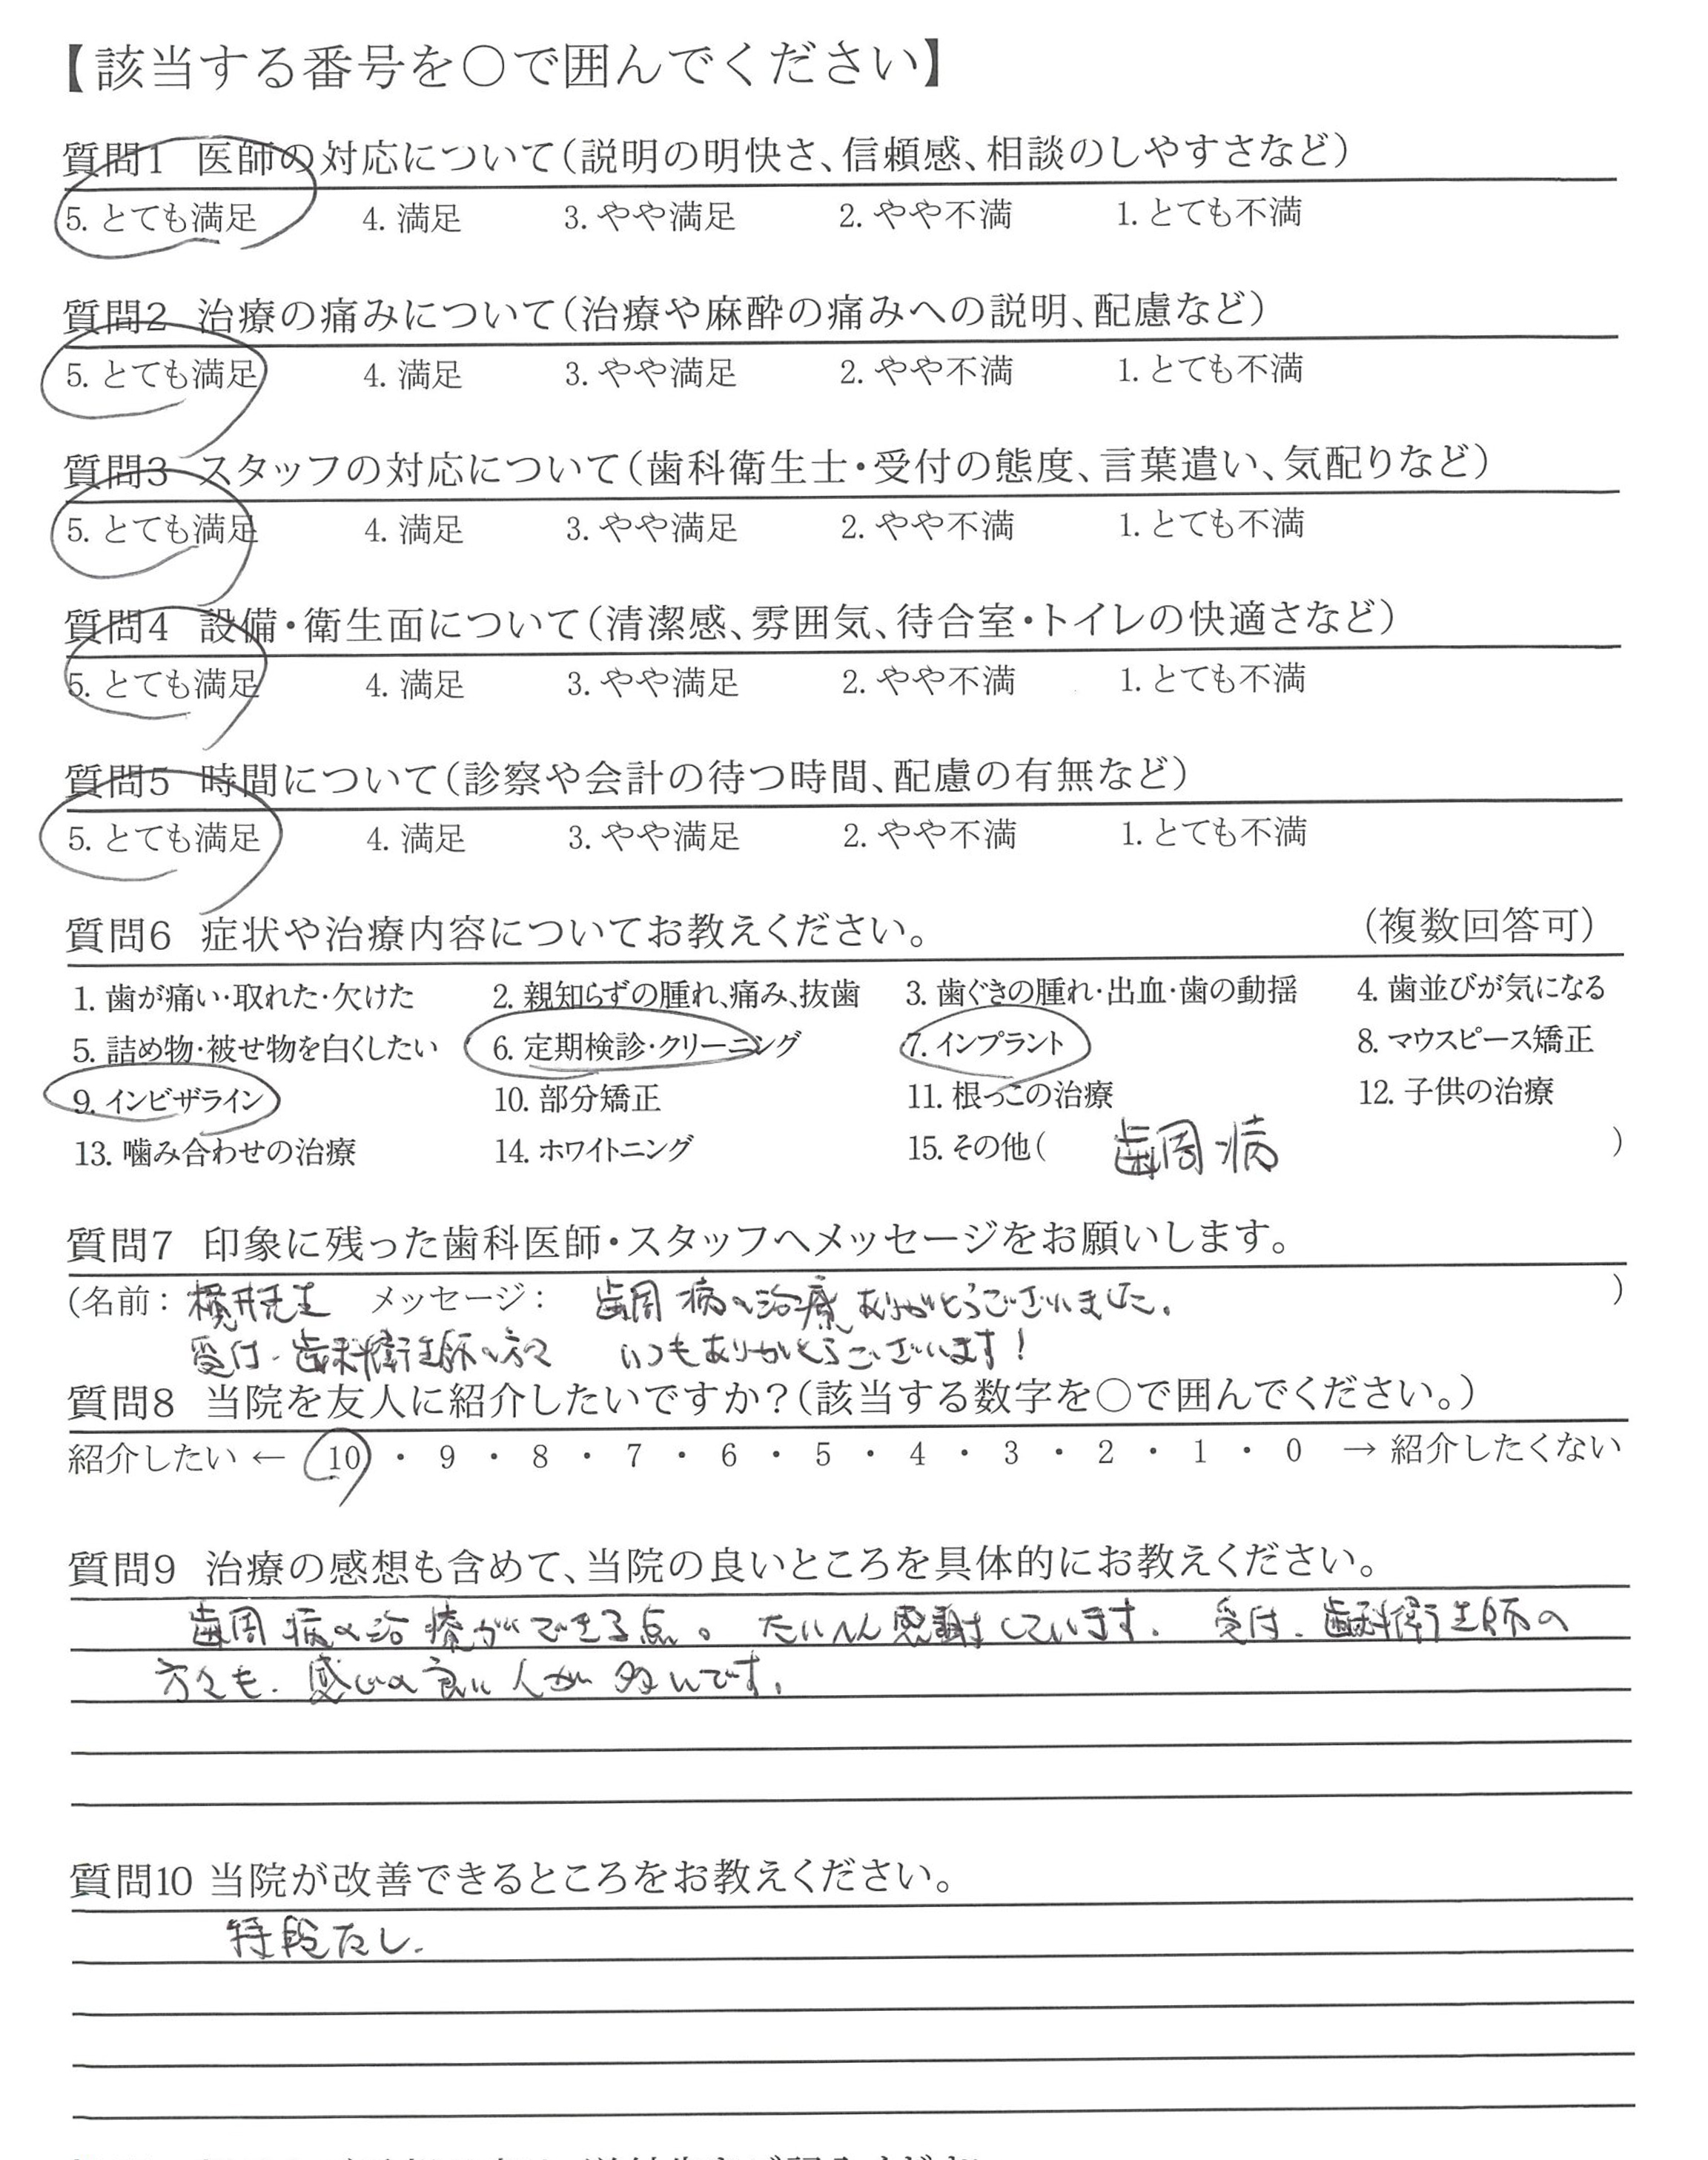 【該当する番号を○で囲んでください】
質問1 医師の対応について(説明の明快さ、信頼感、相談のしやすさなど)
5. とても満足 4. 満足 3. やや満足 2. やや不満 1. とても不満
質問2 治療の痛みについて(治療や麻酔の痛みへの説明、配慮など)
5. とても満足 4. 満足 3. やや満足 2. やや不満 1. とても不満
質問3 スタッフの対応について(歯科衛生士・受付の態度、言葉遣い、気配りなど)
5. とても満足 4. 満足 3. やや満足 2. やや不満 1. とても不満
質問4 設備・衛生面について(清潔感、雰囲気、待合室・トイレの快適さなど)
5. とても満足 4. 満足 3. やや満足 2. やや不満 1. とても不満
質問5 時間について(診察や会計の待つ時間、配慮の有無など)
5. とても満足 4. 満足 3. やや満足 2. やや不満 1. とても不満
質問6 症状や治療内容についてお教えください。 (複数回答可)
1. 歯が痛い・取れた・欠けた 2. 親知らずの腫れ、痛み、抜歯 3. 歯ぐきの腫れ・出血・歯の動揺 4. 歯並びが気になる
5. 詰め物・被せ物を白くしたい 6. 定期検診・クリーニング 7. インプラント 8. マウスピース矯正
9. インビザライン 10. 部分矯正 11. 根っこの治療 12. 子供の治療
13. 噛み合わせの治療 14. ホワイトニング 15. その他( 歯周病 )
質問7 印象に残った歯科医師・スタッフへメッセージをお願いします。
(名前: 横井先生 メッセージ: 歯周病の治療ありがとうございました。 )
受付・歯科衛生師の方々 いつもありがとうございます!
質問8 当院を友人に紹介したいですか?(該当する数字を○で囲んでください。)
紹介したい ← 10 ・ 9 ・ 8 ・ 7 ・ 6 ・ 5 ・ 4 ・ 3 ・ 2 ・ 1 ・ 0 → 紹介したくない
質問9 治療の感想も含めて、当院の良いところを具体的にお教えください。
歯周病の治療ができる点。たいへん感謝しています。受付・歯科衛生師の
方々も、感じの良い人が多いです。
質問10 当院が改善できるところをお教えください。
特段なし。